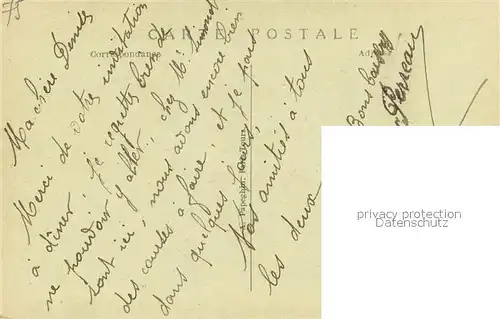 75
CARTE POSTALE
Correspondance
Ma chère Denise
Merci de votre invitation
à dîner, je regrette bien de
ne pouvoir y aller, chez Mr
sont ici, nous avons encore bien
des courses à faire, et je pars
dans quelques jours,
amitiés à tous
les deux
Bons baisers
Perreau
privacy protection